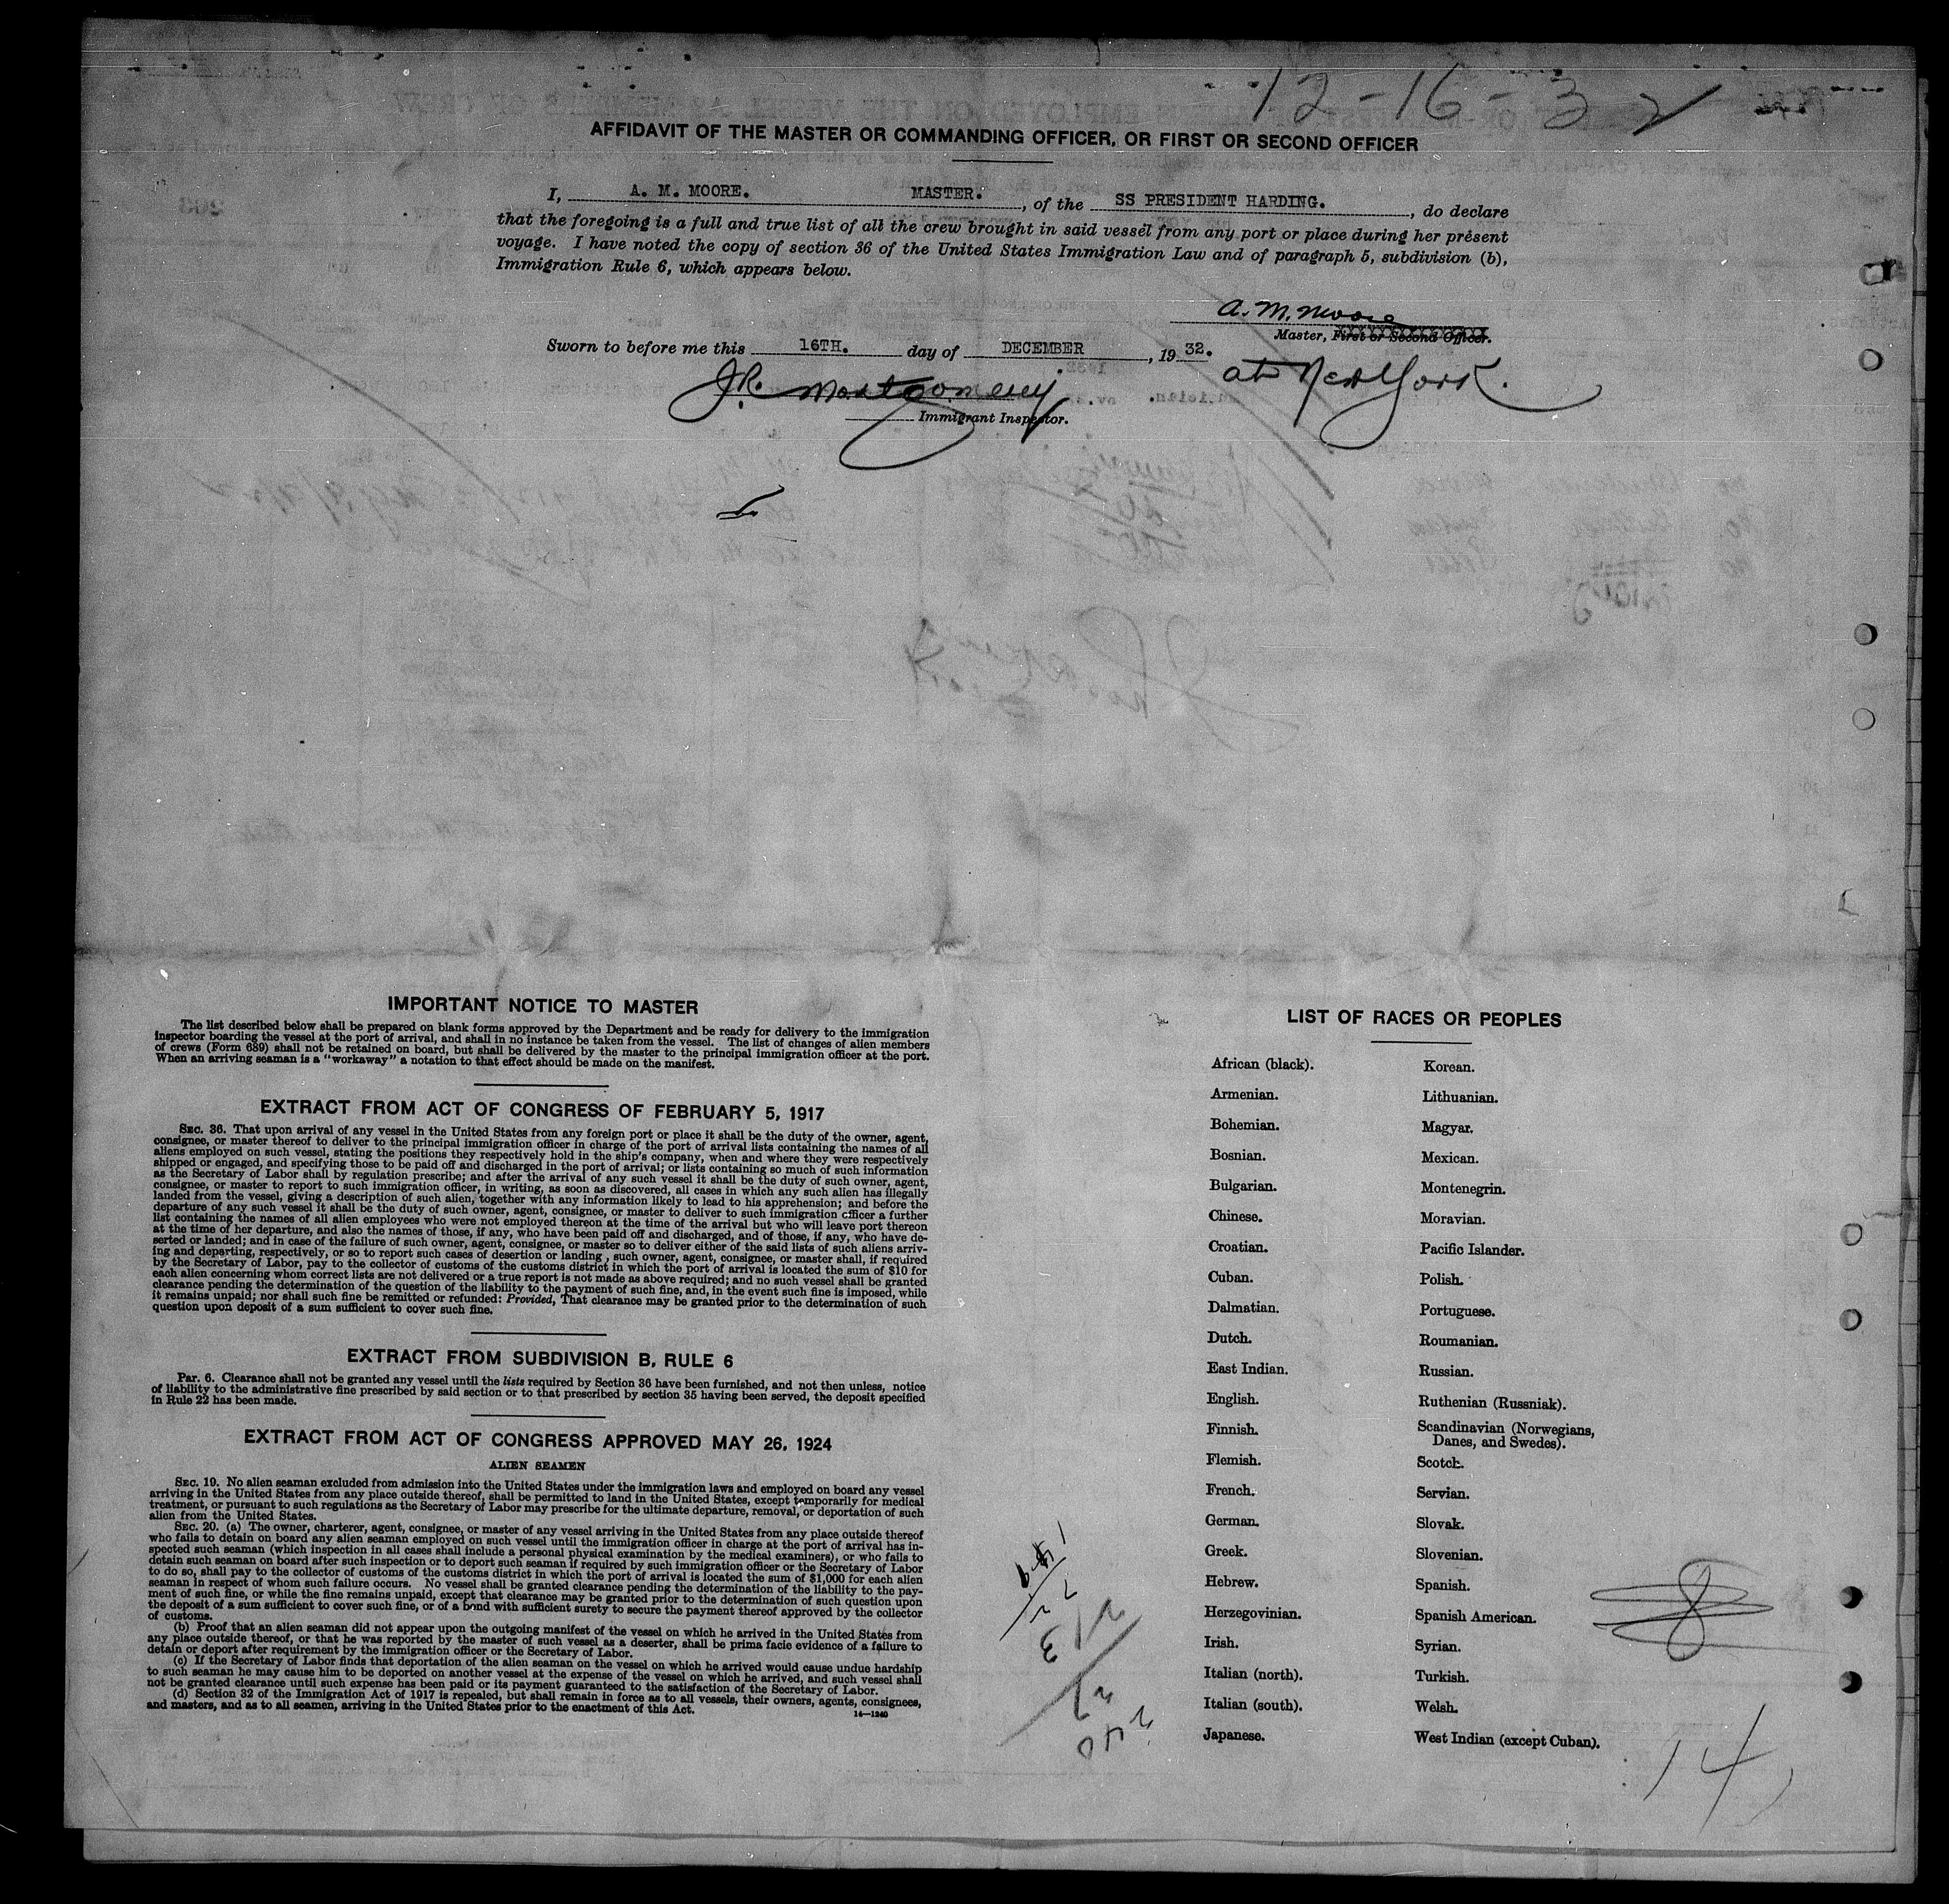 12-16-32
AFFIDAVIT OF THE MASTER OR COMMANDING OFFICER, OR FIRST OR SECOND OFFICER
I, A. M. MOORE. MASTER. , of the SS PRESIDENT HARDING. , do declare
that the foregoing is a full and true list of all the crew brought in said vessel from any port or place during her present
voyage. I have noted the copy of section 36 of the United States Immigration Law and of paragraph 5, subdivision (b),
Immigration Rule 6, which appears below.
A. M. Moore
Master, First or Second Officer.
Sworn to before me this 16TH. day of DECEMBER , 19 32.
at New York.
J.R. Montgomery
Immigrant Inspector.
IMPORTANT NOTICE TO MASTER
The list described below shall be prepared on blank forms approved by the Department and be ready for delivery to the immigration
inspector boarding the vessel at the port of arrival, and shall in no instance be taken from the vessel. The list of changes of alien members
of crews (Form 689) shall not be retained on board, but shall be delivered by the master to the principal immigration officer at the port.
When an arriving seaman is a "workaway" a notation to that effect should be made on the manifest.
EXTRACT FROM ACT OF CONGRESS OF FEBRUARY 5, 1917
SEC. 36. That upon arrival of any vessel in the United States from any foreign port or place it shall be the duty of the owner, agent,
consignee, or master thereof to deliver to the principal immigration officer in charge of the port of arrival lists containing the names of all
aliens employed on such vessel, stating the positions they respectively hold in the ship's company, when and where they were respectively
shipped or engaged, and specifying those to be paid off and discharged in the port of arrival; or lists containing so much of such information
as the Secretary of Labor shall by regulation prescribe; and after the arrival of any such vessel it shall be the duty of such owner, agent,
consignee, or master to report to such immigration officer, in writing, as soon as discovered, all cases in which any such alien has illegally
landed from the vessel, giving a description of such alien, together with any information likely to lead to his apprehension; and before the
departure of any such vessel it shall be the duty of such owner, agent, consignee, or master to deliver to such immigration officer a further
list containing the names of all alien employees who were not employed thereon at the time of the arrival but who will leave port thereon
at the time of her departure, and also the names of those, if any, who have been paid off and discharged, and of those, if any, who have de-
serted or landed; and in case of the failure of such owner, agent, consignee, or master so to deliver either of the said lists of such aliens arriv-
ing and departing, respectively, or so to report such cases of desertion or landing , such owner, agent, consignee, or master shall, if required
by the Secretary of Labor, pay to the collector of customs of the customs district in which the port of arrival is located the sum of $10 for
each alien concerning whom correct lists are not delivered or a true report is not made as above required; and no such vessel shall be granted
clearance pending the determination of the question of the liability to the payment of such fine, and, in the event such fine is imposed, while
it remains unpaid; nor shall such fine be remitted or refunded: Provided, That clearance may be granted prior to the determination of such
question upon deposit of a sum sufficient to cover such fine.
EXTRACT FROM SUBDIVISION B, RULE 6
Par. 6. Clearance shall not be granted any vessel until the lists required by Section 36 have been furnished, and not then unless, notice
of liability to the administrative fine prescribed by said section or to that prescribed by section 35 having been served, the deposit specified
in Rule 22 has been made.
EXTRACT FROM ACT OF CONGRESS APPROVED MAY 26, 1924
ALIEN SEAMEN
SEC. 19. No alien seaman excluded from admission into the United States under the immigration laws and employed on board any vessel
arriving in the United States from any place outside thereof, shall be permitted to land in the United States, except temporarily for medical
treatment, or pursuant to such regulations as the Secretary of Labor may prescribe for the ultimate departure, removal, or deportation of such
alien from the United States.
SEC. 20. (a) The owner, charterer, agent, consignee, or master of any vessel arriving in the United States from any place outside thereof
who fails to detain on board any alien seaman employed on such vessel until the immigration officer in charge at the port of arrival has in-
spected such seaman (which inspection in all cases shall include a personal physical examination by the medical examiners), or who fails to
detain such seaman on board after such inspection or to deport such seaman if required by such immigration officer or the Secretary of Labor
to do so, shall pay to the collector of customs of the customs district in which the port of arrival is located the sum of $1,000 for each alien
seaman in respect of whom such failure occurs. No vessel shall be granted clearance pending the determination of the liability to the pay-
ment of such fine, or while the fine remains unpaid, except that clearance may be granted prior to the determination of such question upon
the deposit of a sum sufficient to cover such fine, or of a bond with sufficient surety to secure the payment thereof approved by the collector
of customs.
(b) Proof that an alien seaman did not appear upon the outgoing manifest of the vessel on which he arrived in the United States from
any place outside thereof, or that he was reported by the master of such vessel as a deserter, shall be prima facie evidence of a failure to
detain or deport after requirement by the immigration officer or the Secretary of Labor.
(c) If the Secretary of Labor finds that deportation of the alien seaman on the vessel on which he arrived would cause undue hardship
to such seaman he may cause him to be deported on another vessel at the expense of the vessel on which he arrived, and such vessel shall
not be granted clearance until such expense has been paid or its payment guaranteed to the satisfaction of the Secretary of Labor.
(d) Section 32 of the Immigration Act of 1917 is repealed, but shall remain in force as to all vessels, their owners, agents, consignees,
and masters, and as to all seamen, arriving in the United States prior to the enactment of this Act.
14—1240
LIST OF RACES OR PEOPLES
African (black). Korean.
Armenian. Lithuanian.
Bohemian. Magyar.
Bosnian. Mexican.
Bulgarian. Montenegrin.
Chinese. Moravian.
Croatian. Pacific Islander.
Cuban. Polish.
Dalmatian. Portuguese.
Dutch. Roumanian.
East Indian. Russian.
English. Ruthenian (Russniak).
Finnish. Scandinavian (Norwegians,
Danes, and Swedes).
Flemish. Scotch.
French. Servian.
German. Slovak.
Greek. Slovenian.
Hebrew. Spanish.
Herzegovinian. Spanish American.
Irish. Syrian.
Italian (north). Turkish.
Italian (south). Welsh.
Japanese. West Indian (except Cuban).
8
14